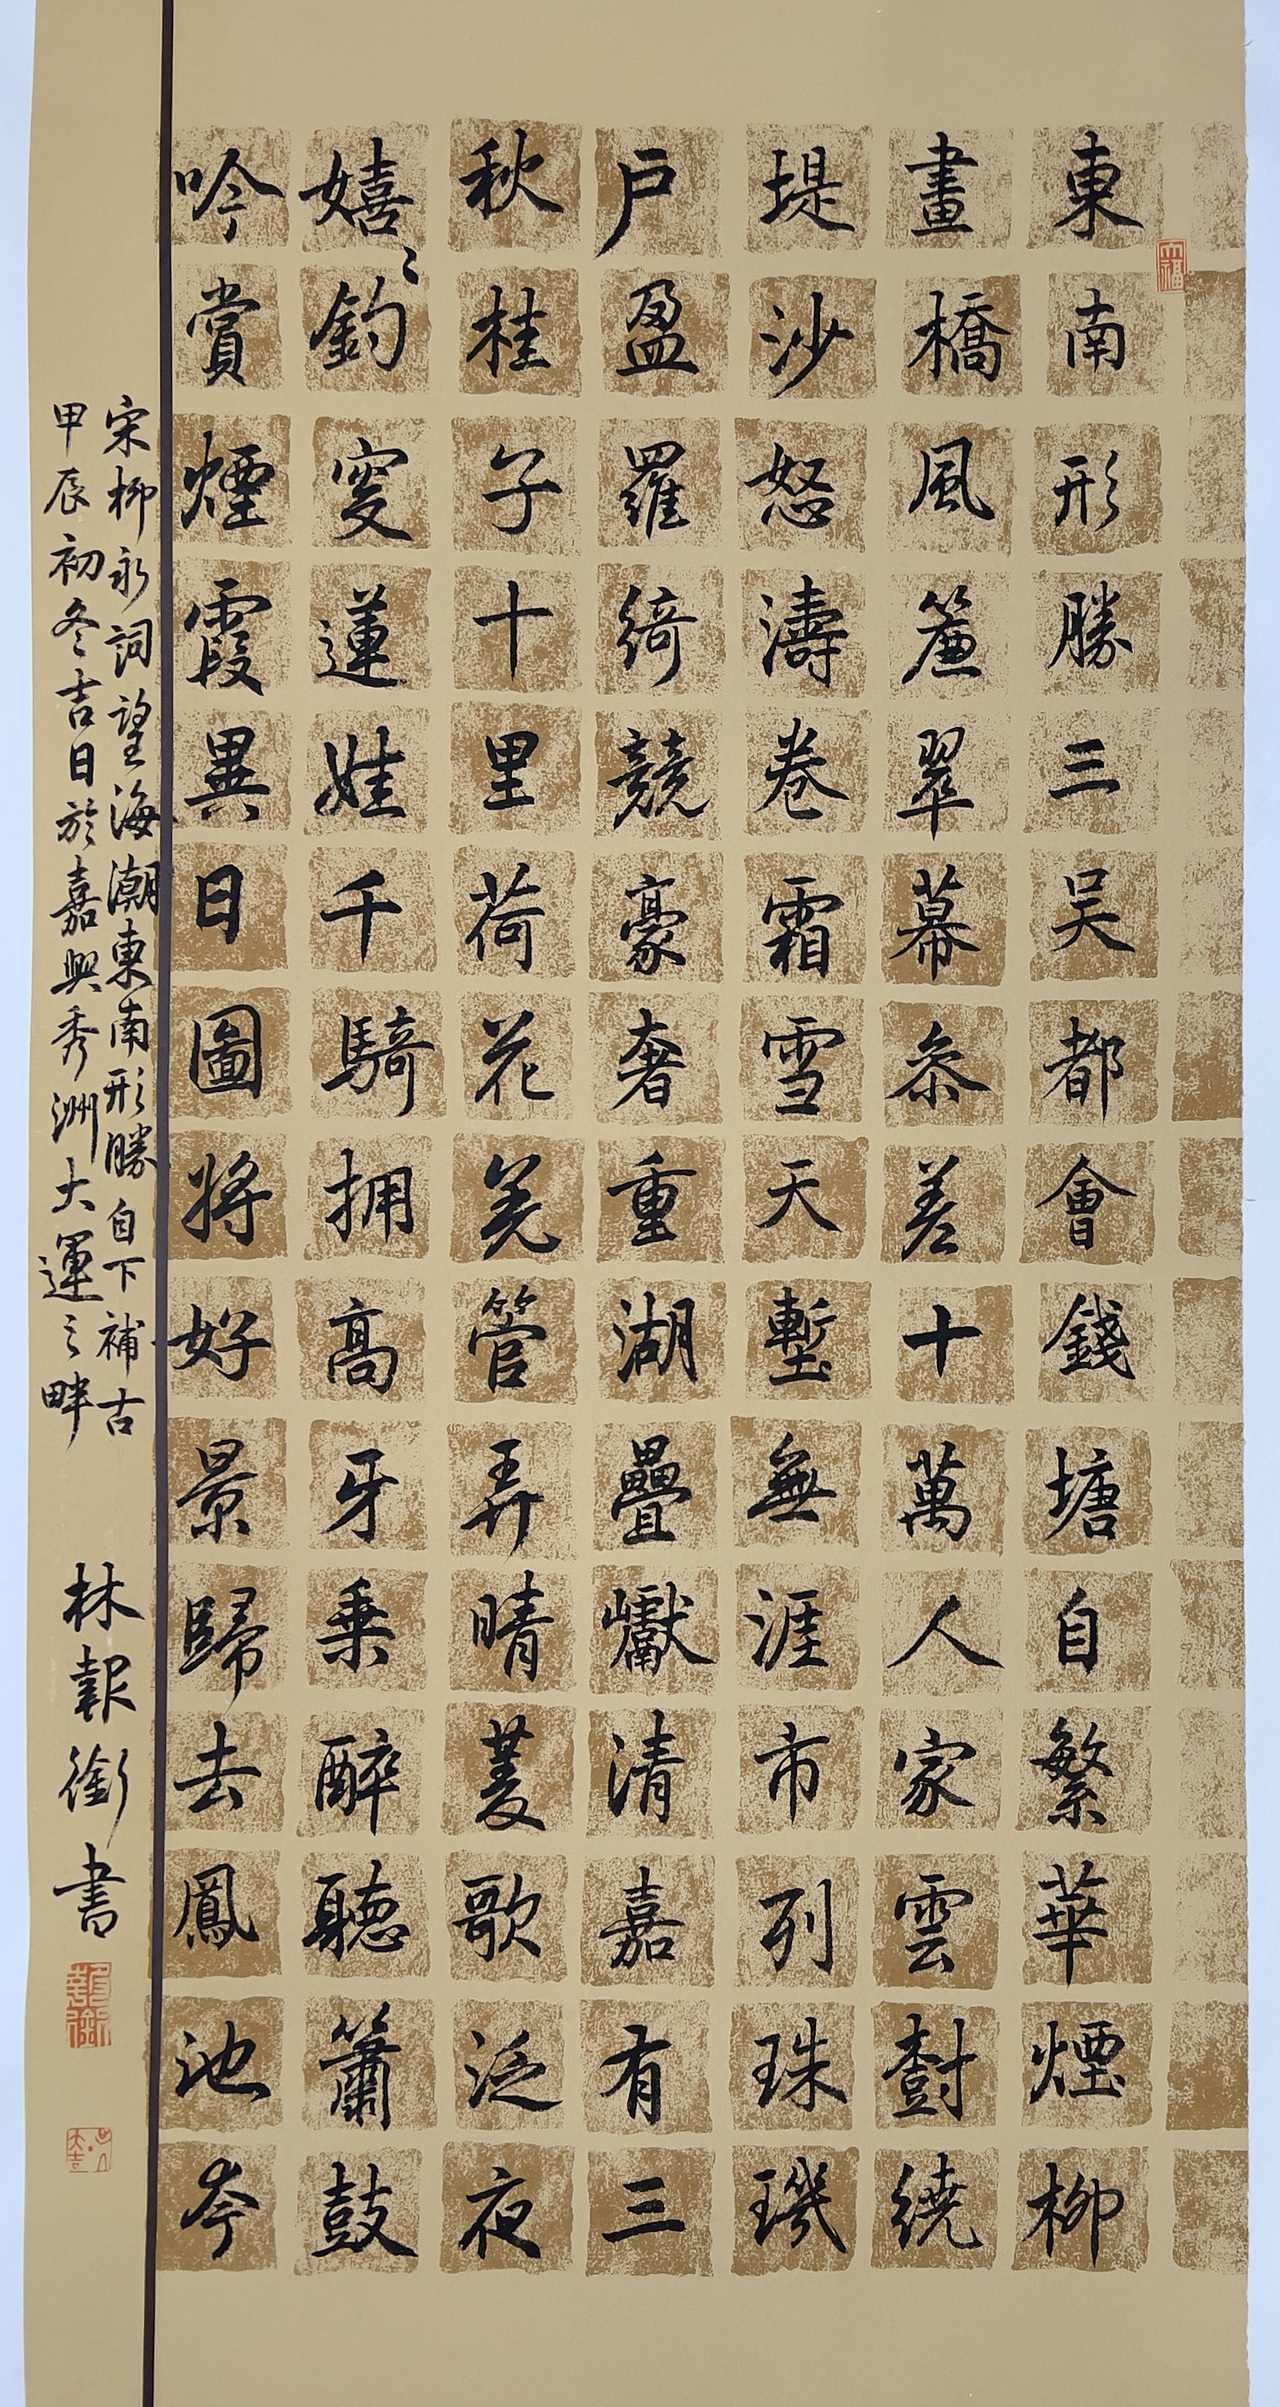 東南形勝三吳都會錢塘自繁華煙柳
畫橋風簾翠幕参差十萬人家雲樹繞
堤沙怒濤卷霜雪天塹無涯市列珠璣
戶盈羅綺競豪奢重湖疊巘清嘉有三
秋桂子十里荷花羌管弄晴菱歌泛夜
嬉〻釣叟蓮娃千騎拥高牙乗醉聽簫鼓
吟賞煙霞異日圖將好景歸去鳳池夸
宋柳永詞望海潮東南形勝自下補古
甲辰初冬吉日於嘉興秀洲大運之畔
林報銜書